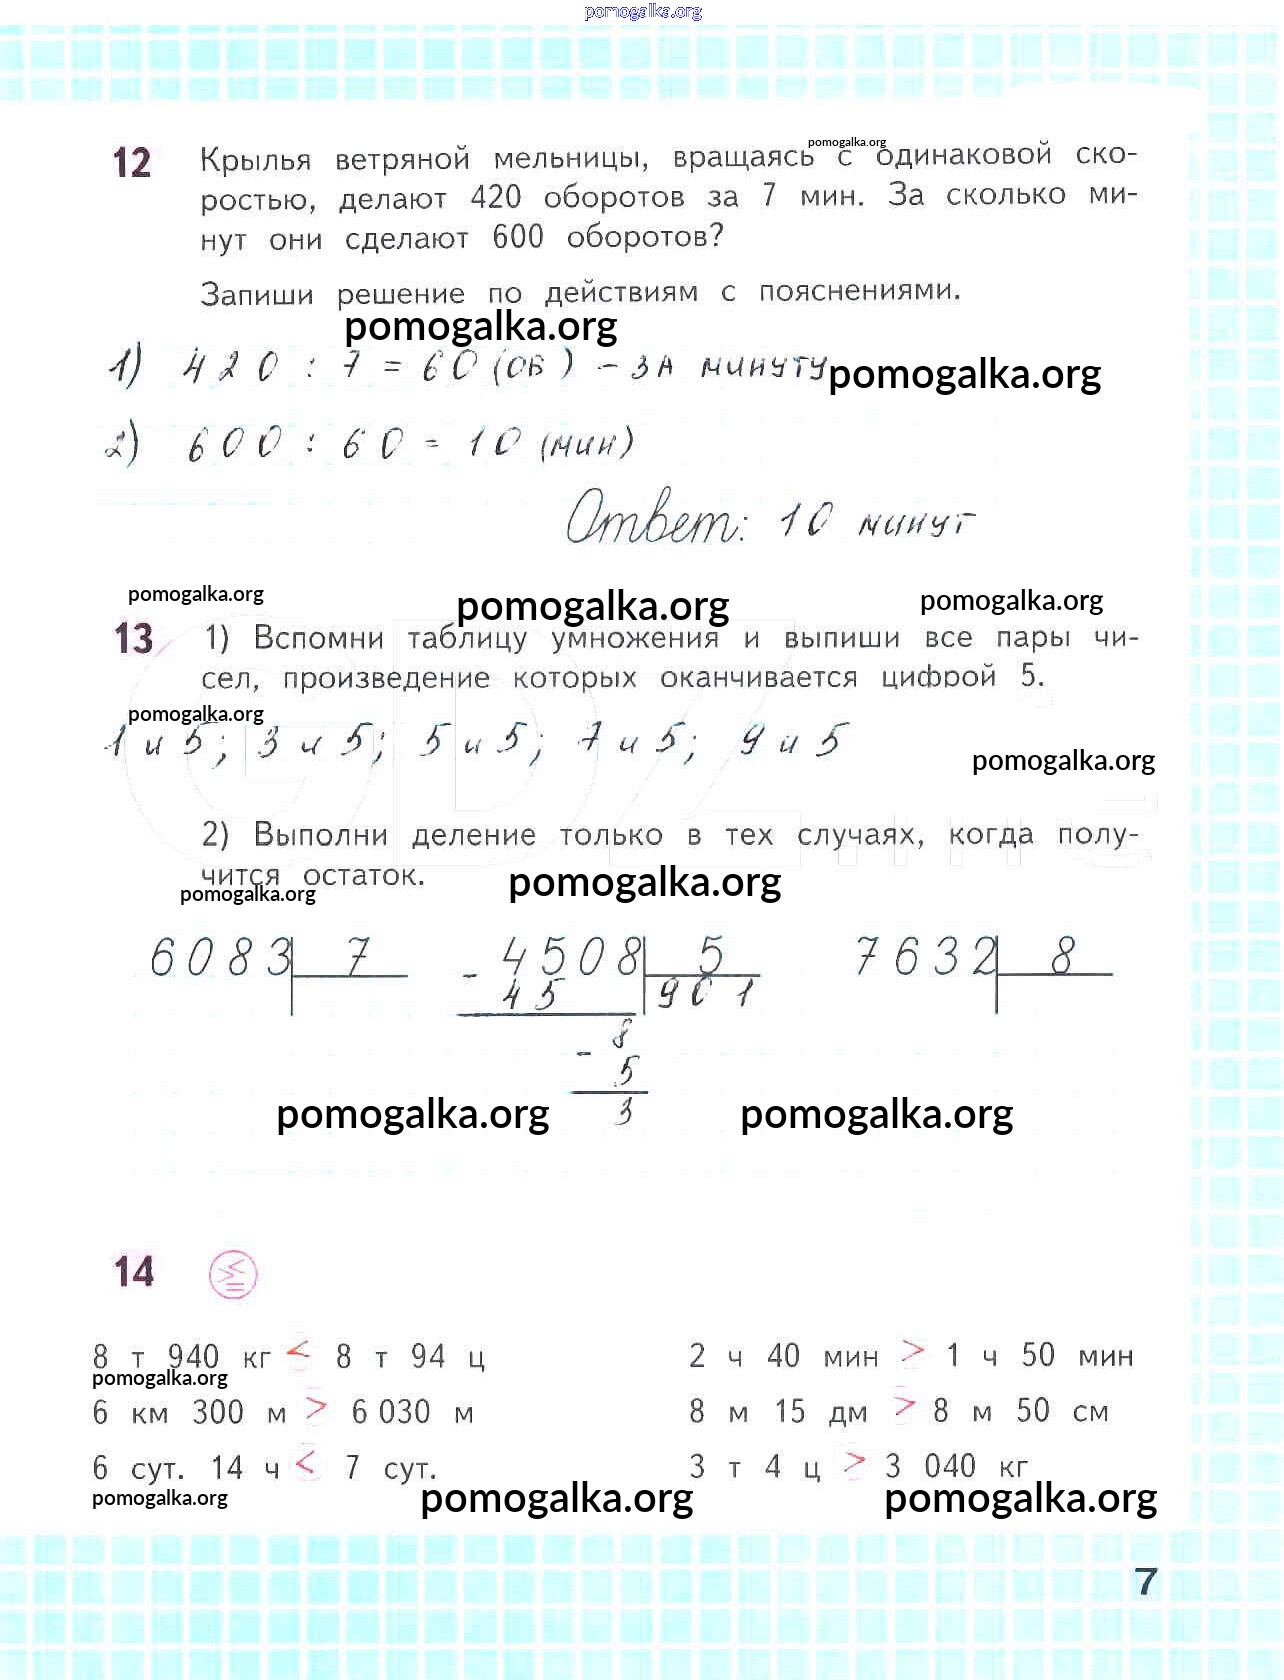 pomogalka.org
pomogalka.org
12 Крылья ветряной мельницы, вращаясь с одинаковой ско-
ростью, делают 420 оборотов за 7 мин. За сколько ми-
нут они сделают 600 оборотов?
Запиши решение по действиям с пояснениями.
pomogalka.org
1) 420 : 7 = 60 (ОБ) – ЗА МИНУТУ
pomogalka.org
2) 600 : 60 = 10 (мин)
Ответ: 10 минут
pomogalka.org pomogalka.org pomogalka.org
13 1) Вспомни таблицу умножения и выпиши все пары чи-
сел, произведение которых оканчивается цифрой 5.
pomogalka.org
1 и 5; 3 и 5; 5 и 5; 7 и 5; 9 и 5
pomogalka.org
2) Выполни деление только в тех случаях, когда полу-
чится остаток.
pomogalka.org pomogalka.org
6083 7 - 4508 5 7632 8
45 901
8
- 5
3
pomogalka.org pomogalka.org
14 > < =
8 т 940 кг < 8 т 94 ц 2 ч 40 мин > 1 ч 50 мин
pomogalka.org
6 км 300 м > 6 030 м 8 м 15 дм > 8 м 50 см
6 сут. 14 ч < 7 сут. 3 т 4 ц > 3 040 кг
pomogalka.org pomogalka.org pomogalka.org
7